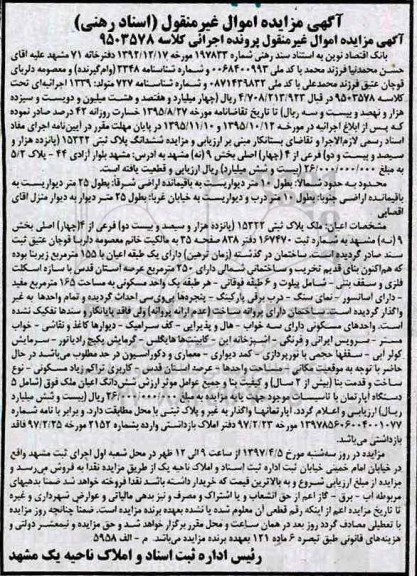 آگهی مزایده اموال غیرمنقول (اسناد رهنی)
آگهی مزایده اموال غیرمنقول پرونده اجرائی کلاسه ۹۵۰۳۵۷۸
بانک اقتصاد نوین به استناد سند رهنی شماره ۱۹۷۸۳۳ مورخه ۱۳۹۲/۱۲/۱۷ دفترخانه ۷۱ مشهد علیه آقای
حسن محمدنیا فرزند محمد با کد ملی ۰۰۶۸۴۰۰۹۹۳ و شماره شناسنامه ۳۳۴۸ (وام‌گیرنده) و معصومه دلربای
قوچان عتیق فرزند محمدعلی با کد ملی ۰۸۷۱۴۳۹۸۳۲ و شماره شناسنامه ۷۲۷ متولد: ۱۳۳۹ اجرائیه‌ای تحت
کلاسه ۹۵۰۳۵۷۸ در قبال ۴/۷۰۸/۲۱۳/۹۲۳ ریال (چهار میلیارد و هفتصد و هشت میلیون و دویست و سیزده
هزار و نهصد و بیست و سه ریال) تا تاریخ تقاضانامه مورخه ۱۳۹۵/۸/۲۷ خسارت روزانه ۴۲ درصد صادر نموده
که پس از ابلاغ اجرائیه در مورخه ۱۳۹۵/۱۰/۱۲ و ۱۳۹۵/۱۱/۱۰ در پایان مهلت مقرر در آیین‌نامه اجرای مفاد
اسناد رسمی لازم‌الاجرا و تقاضای بستانکار مبنی بر ارزیابی و مزایده ششدانگ پلاک ثبتی ۱۵۳۲۲ (پانزده هزار و
سیصد و بیست و دو) فرعی از ۴ (چهار) اصلی بخش ۹ (نه) مشهد به آدرس: مشهد بلوار آزادی ۴۴ - پلاک ۵/۲
به مبلغ ۲۶/۰۰۰/۰۰۰/۰۰۰ (بیست و شش میلیارد) ریال ارزیابی و قطعیت یافته است.
محدود به حدود شمالا: بطول ۱۰ متر دیواریست به باقیمانده اراضی شرقاً: بطول ۲۵ متر دیواریست به
باقیمانده اراضی جنوبا: بطول ۱۰ متر درب و دیواریست به خیابان غربا: بطول ۲۵ متر دیوار به دیوار منزل آقای
اقضایی
مشخصات اعیان: ملک پلاک ثبتی ۱۵۳۲۲ (پانزده هزار و سیصد و بیست دو) فرعی از ۴(چهار) اصلی بخش
۹ (نه) مشهد به شماره ثبت ۱۶۷۴۷۰ دفتر ۸۳۸ صفحه ۳۵ به مالکیت خانم معصومه دلربا قوچان عتیق ثبت
سند صادر گردیده است. ساختمان در گذشته (زمان ترهین) دارای یک طبقه اعیان با ۱۵۵ مترمربع زیربنا بوده
که هم‌اکنون بنای قدیم تخریب و ساختمانی شمالی دارای ۲۵۰ مترمربع عرصه آستان قدس با سازه اسکلت
فلزی و سقف بتنی - شامل پیلوت و ۶ طبقه فوقانی - هر طبقه یک واحد مسکونی به مساحت ۱۶۵ مترمربع مفید
- دارای آسانسور - نمای سنگ - درب برقی پارکینگ - پنجره‌ها پی‌وی‌سی احداث گردیده و تمام واحدها به غیر
واگذار گردیده است. ساختمان دارای پروانه ساخت (عدم ارائه پروانه) ولی فاقد پایانکار و سندها تفکیک نشده
است. واحدهای مسکونی دارای سه خواب - هال و پذیرایی - کف سرامیک - دیوارها کاغذ و نقاشی - خواب
مستر - سرویس ایرانی و فرنگی - آشپزخانه اپن - کابینت‌ها هایگلس - گرمایش پکیج رادیاتور - سرمایش
کولر آبی - سقفها حجمی با نورپردازی - کمد دیواری - معماری و دکوراسیون در حد مطلوب می‌باشد در حال
حاضر با توجه به موقعیت مکانی - مساحت واحدها - عرصه آستان قدس - کاربری تراکم زیاد مسکونی - نوع
ساخت و قدمت بنا (بیش از ۲ سال) و کیفیت بنا و جمیع عوامل موثر ارزش شش‌دانگ اعیان ملک فوق (شامل ۵
دستگاه آپارتمان با تاسیسات موجود جهت پایه مزایده به مبلغ ۲۶/۰۰۰/۰۰۰/۰۰۰ ریال (بیست و شش میلیارد
ریال) ارزیابی و اعلام گردد. آپارتمانها واگذار به غیر و پلاک ثبتی با محل مطابقت دارد. و برابر با نامه شماره
۱۳۹۷۸۵۶۰۶۰۰۴۰۰۱۰۷۷ مورخه ۹۷/۲/۲۳ دفتر املاک بازداشتی وارده بشماره ۲۱۵۲ مورخه ۹۷/۲/۲۵ فاقد
بازداشتی می‌باشد.
مزایده در روز سه‌شنبه مورخ ۱۳۹۷/۴/۵ از ساعت ۹ الی ۱۲ ظهر در محل شعبه اول اجرای ثبت مشهد واقع
در خیابان امام خمینی خیابان ثبت اداره ثبت اسناد و املاک ناحیه یک از طریق مزایده نقدا به فروش می‌رسد و
مزایده از مبلغ ارزیابی شروع و به بالاترین قیمت که خریدار داشته باشد نقدا فروخته خواهد شد ضمنا بدهیهای
مربوطه آب - برق - گاز اعم از حق انشعاب و یا اشتراک و مصرف و نیز بدهی مالیاتی و عوارض شهرداری و غیره
تا تاریخ مزایده اعم از اینکه رقم قطعی آن معلوم شده یا نشده بعهده برنده مزایده است. ضمنا چنانچه روز مزایده
با تعطیلی مصادف گردد روز بعد در همان ساعت و محل مقرر برگزار خواهد شد و حق مزایده و نیمعشر دولتی و
هزینه‌های قانونی طبق تبصره ۶ ماده ۱۲۱ بعهده برنده مزایده می‌باشد. م - الف ۵۹۵۸
رئیس اداره ثبت اسناد و املاک ناحیه یک مشهد